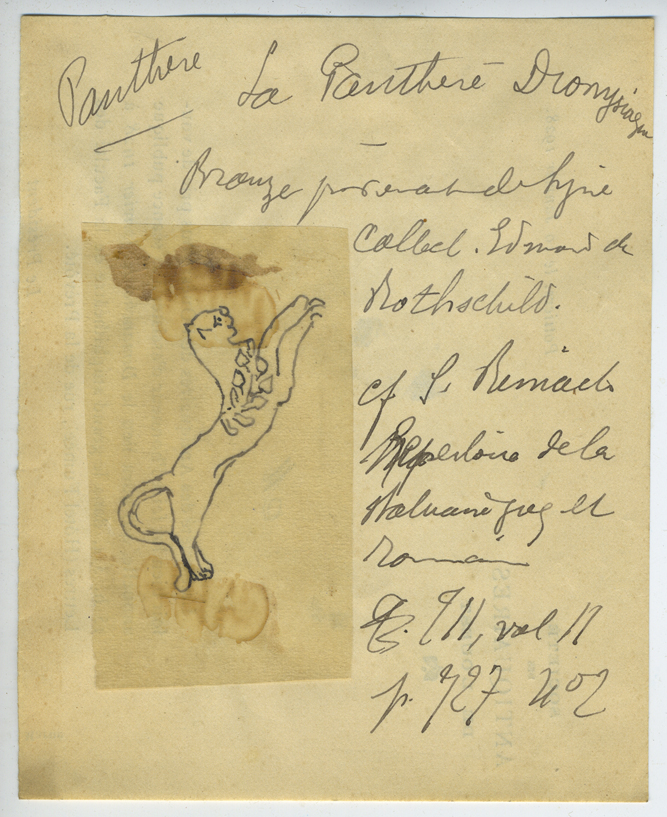 Panthère
La Panthère Dionysiaque
Bronze provenant de
Collect. Edmond de
Rothschild.
cf S. Reinach
Repertoire de la
statuaire grec et
romain
T. II, vol II
p. 727 no 2